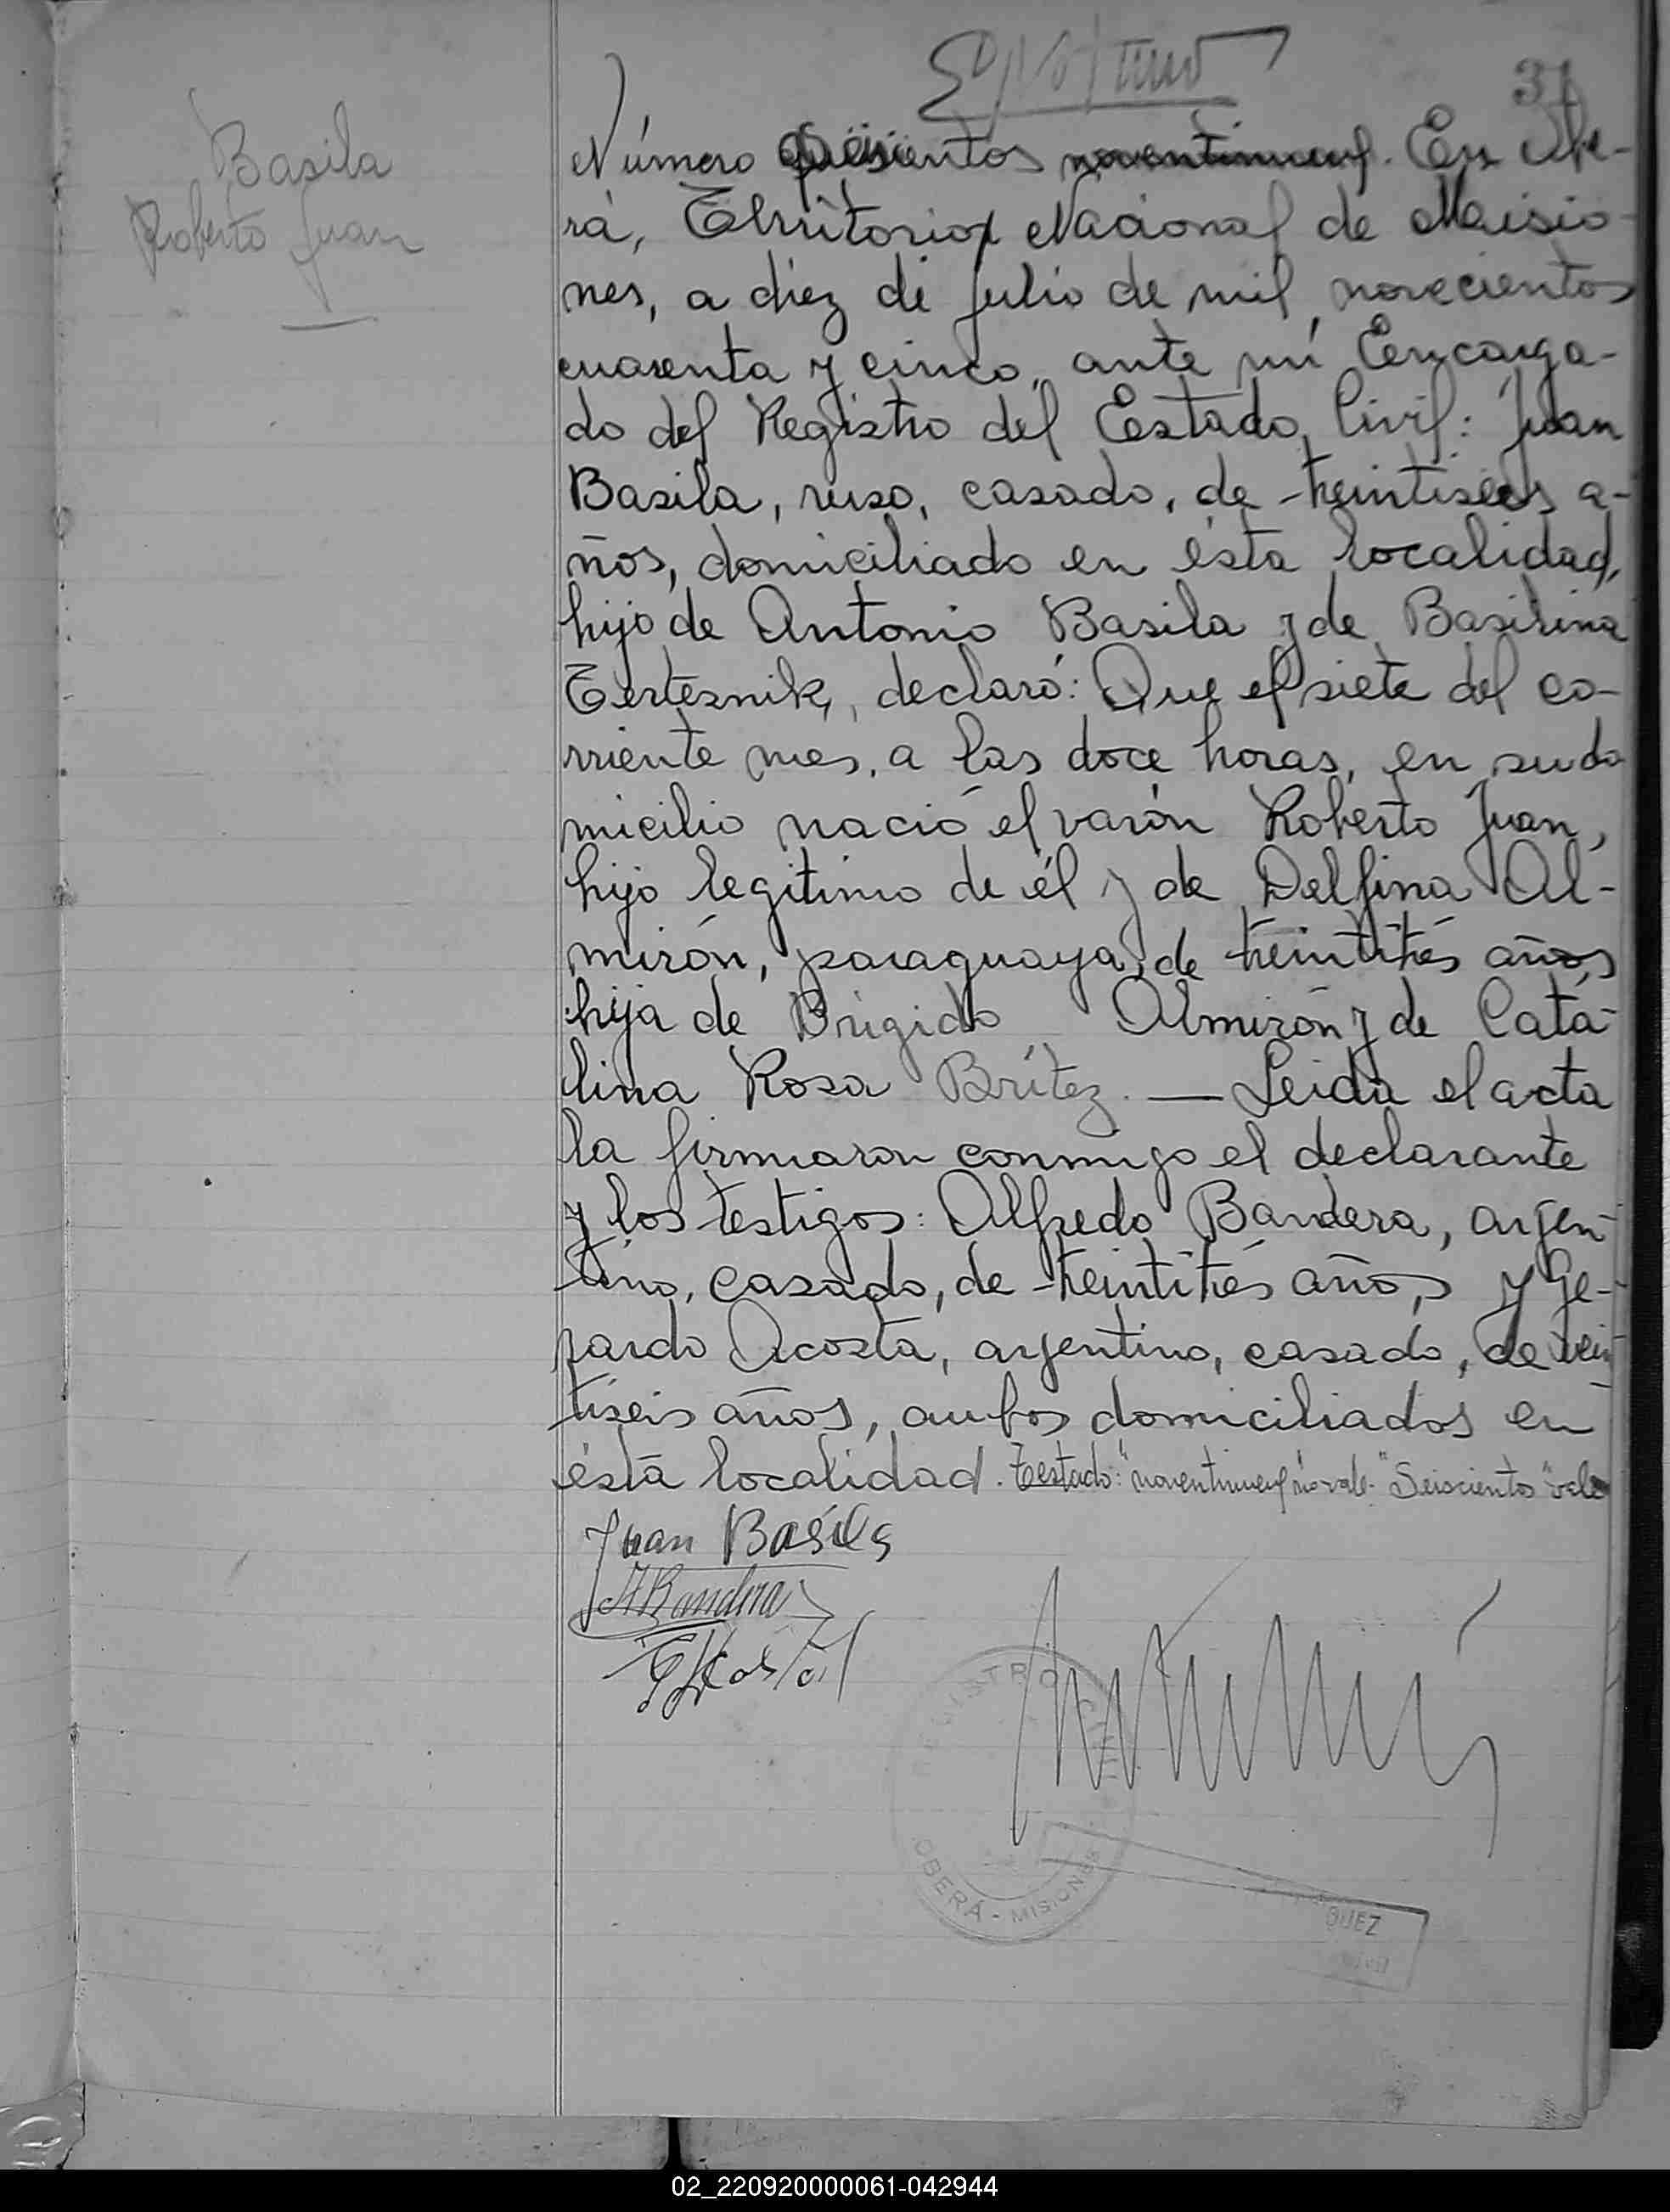 31
Basila
Roberto Juan
Número Seiscientos noventinueve. En Obe-
rá, Territorio Nacional de Misio-
nes, a diez de julio de mil novecientos
cuarenta y cinco, ante mí Encarga-
do del Registro del Estado Civil: Juan
Basila, ruso, casado, de treintiseis a-
ños, domiciliado en ésta localidad,
hijo de Antonio Basila y de Basirina
Terteznik, declaró: Que el siete del co-
rriente mes, a las doce horas, en su do
micilio nació el varón Roberto Juan,
hijo legitimo de él y de Delfina Al-
mirón, paraguaya, de treintitrés años
hija de Brigido Almirón y de Cata-
lina Rosa Brítez. — Leida el acta
la firmaron conmigo el declarante
y los testigos: Alfredo Bandera, argen-
tino, casado, de treintitrés años y Ge-
rardo Acosta, argentino, casado, de vein
tiseis años, ambos domiciliados en
ésta localidad. Testado: "noventinueve" no vale. "Seiscientos" vale
Juan Basila
ABandera
GAcosta
REGISTRO CIVIL
OBERÁ - MISIONES
GUEZ
02_220920000061-042944